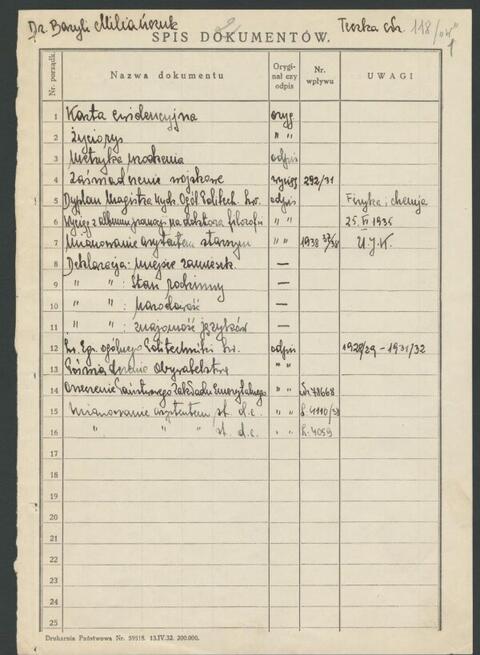 Dr. Bazyli Miliańczuk
Teczka Nr. 118/
SPIS DOKUMENTÓW.
Nr. porządk. Nazwa dokumentu Orygi- nał czy odpis Nr. wpływu UWAGI
1 Karta ewidencyjna oryg
2 Życiorys " "
3 Metryka urodzenia odpis
4 Zaświadczenie wojskowe wyciąg 292/31
5 Dyplom Magistra Wydz. Ogól Politech. Lw. odpis Fizyka i chemja
6 Wyciąg z albumu promocji na doktora filozofii " " 25. VI 1935
7 Mianowanie asystentem starszym " " 1938 37/38 U.J.K.
8 Deklaracja: miejsce zamieszk. —
9 " " : Stan rodzinny —
10 " " : Narodowość —
11 " " : znajomość języków —
12 Politechniki Lw. odpis 1928/29 – 1931/32
13 Obywatelstwa " "
14 Orzeczenie Państwowego Zakładu Emerytalnego " " 78668
15 Mianowanie asystentem st. d.c. " " L. 4110/38
16 " " st. d.c. " " L. 4059
17
18
19
20
21
22
23
24
25
Drukarnia Państwowa Nr. 59518. 13.IV.32. 200.000.